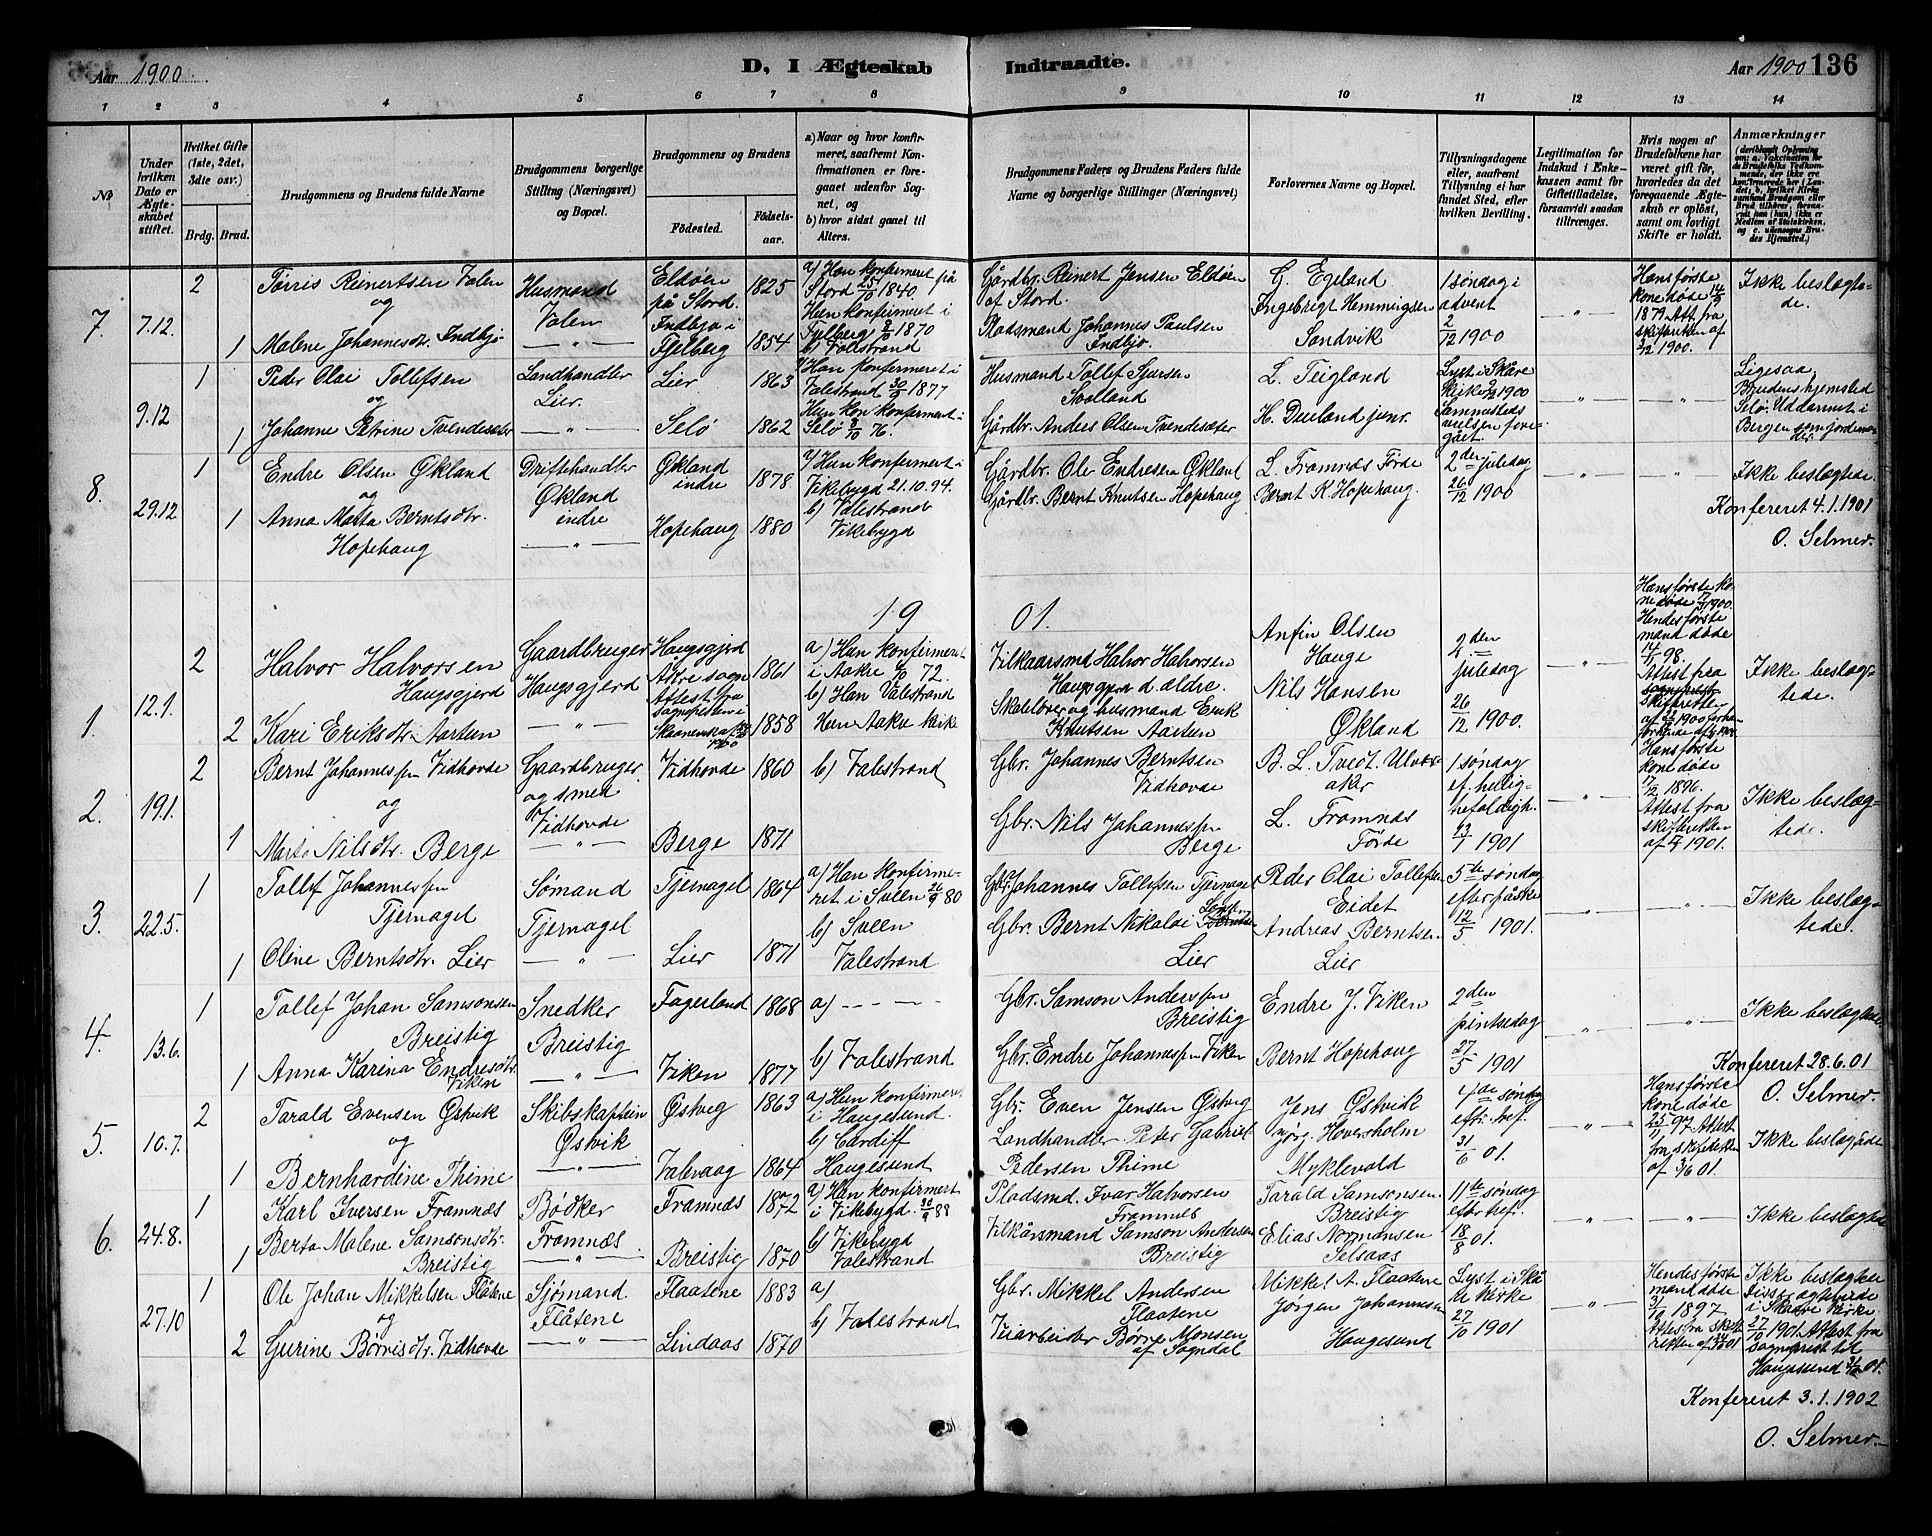 Aar 1900.
D, I Ægteskab Indtraadte.
Aar 1900 136
1 2 3 4 5 6 7 8 9 10 11 12 13 14
No
Under hvilken Dato er Ægteskabet stiftet.
Hvilket Gifte (1ste, 2det, 3die osv.)
Brdg. Brud.
Brudgommens og Brudens fulde Navne
Brudgommens borgerlige Stilling (Næringsvei) og Bopæl.
Brudgommens og Brudens
Fødested. Fødselsaar.
a) Naar og hvor konfirmeret, saafremt Konfirmationen er foregaaet udenfor Sognet, og
b) hvor sidst gaaet til Alters.
Brudgommens Faders og Brudens Faders fulde Navne og borgerlige Stillinger (Næringsvei)
Forlovernes Navne og Bopæl.
Tillysningsdagene eller, saafremt Tillysning ei har fundet Sted, efter hvilken Bevilling.
Legitimation for Indskud i Enkekassen samt for Giftetilladelse, forsaavidt saadan tiltrænges.
Hvis nogen af Brudefolkene har været gift før, hvorledes da det foregaaende Ægteskab er opløst, samt om lovligt Skifte er holdt.
Anmærkninger
7. 7.12. 2
Tørris Reinertsen Valen
og
1 Malene Johannesdtr. Indbjo
Husmand
Valen
— " —
Eldøen
på Stord.
Indbjo i
Fjelberg
1825
1854
a) Han konfirmeret på
Stord 25/10 1840.
Hun konfirmeret i
Fjelberg 2/10 1870
b) Valestrand
Gårdbr. Reinert Jensen Eldøen
af Stord.
Pladsmand Johannes Paulsen
Indbjo.
G. Egeland
Ingebrigt Hemmingsen
Sandvik
1 søndag i
advent
2/12 1900
"
Hans første
kone døde 14/9
1879 Att. fra
skifteretten af
3/12 1900.
Ikke beslægtede.
9.12 1
Peder Olai Tollefsen
og
1 Johanne Petrine Tvendesæter
Landhandler
Lier.
— " —
Lier
Selø
1863
1862
a) Han konfirmeret i
Valestrand 30/9 1877
Hun konfirmeret i
Selø 8/10 76.
Husmand Tollef Sjursen
Svolland
Gårdbr. Anders Olsen Tvendesæter
L. Teigland
H. Dueland junr.
Lyst i Skåre
Kirke 9/12 1900
" "
Ligesaa.
Brudens hjemsted
Selø. Uddannet i
Bergen som jordemor
8. 29.12 1
Endre Olsen Økland
og
1 Anna Marta Berntsdtr.
Hopehaug
Driftehandler
Økland
indre
— " —
Økland
indre
Hopehaug
1878
1880
a) Han konfirmeret i
Vikebygd 21.10.94.
b) Valestrand
Vikebygd
Gårdbr. Ole Endresen Økland
Gårdbr. Bernt Knutsen Hopehaug
L. Framnæs Førde
Bernt K. Hopehaug.
2den juledag
26/12 1900
" "
Ikke beslægtede.
Konfereret 4.1.1901
O. Selmer.
1901.
1. 12.1. 2
Halvor Halvorsen
Haugsgjerd
2 Kari Eriksdtr. Aarten
Gaardbruger
Haugsgjerd
— " —
Haugsgjerd
Akre sogn
Attest fra
sognepresten i
1861
1858
a) Han konfirmeret
i Aakre 72.
b) Han Valestrand
Hun Aakre kirke
Vilkaarsmd Halvor Halvorsen
Haugsgjerd d. ældre.
Skolelærer og husmand Erik
Knutsen Aarten
Anfin Olsen
Hauge
Nils Hansen
Økland
2den
juledag
26/12 1900.
"
Hans første kone
døde 1900.
Hendes første
mand døde
14/11 98.
Attest fra
Skifteretten
Ikke beslægtede.
2. 19.1. 2
Bernt Johannessen Vidhovde
og
1 Marta Nilsdtr. Berge
Gaardbruger
og smed
Vidhovde
— " —
Vidhovde
Berge
1860
1871
b) Valestrand
Gbr. Johannes Berntsen
Vidhovde
Gbr. Nils Johannessen
Berge
B. L. Tveit. Ulveraker
L. Framnæs
Førde
1 søndag
ef. helligtrefoldigh.
13/1 1901
"
Hans første
kone døde
17/12 1896.
Attest fra
skifteretten
af 4/1 1901.
Ikke beslægtede.
3. 22.5. 1
Tollef Johannessen
Tjernagel
1 Oline Berntsdtr. Lier
Sømand
Tjernagel
— " —
Tjernagel
Lier
1864
1871
a) Han konfirmeret
i Sveen 26/9 80
b) Sveen
Valestrand
Gbr. Johannes Tollefsen Tjernagel
Gbr. Bernt Nikolai
Lier
Peder Olai Tollefsen
Eidet
Andreas Berntsen
Lier
5te søndag
efter påske
12/5 1901.
" "
Ikke beslægtede.
4. 13.6. 1
Tollef Johan Samsonsen
Breistig
1 Anna Karina Endresdtr.
Viken
Snedker
Breistig
— " —
Fagerland
Viken
1868
1877
a) - - - -
b) Valestrand
Gbr. Samson Anderssen
Breistig
Gbr. Endre Johannessen Viken
Endre J. Viken
Bernt Hopehaug
2den
pintsedag
27/5 1901
" "
Ikke beslægtede
Konfereret 28.6.01
O. Selmer.
5. 10.7. 2
Tarald Evensen Østvik
og
1 Bernhardine Thime
Skibskaptein
Østvik
— " —
Østveg
Valevaag
1863
1864
a) Hun konfirmeret
i Haugesund.
b) Cardiff
Haugesund
Gbr. Even Jensen Østveg
Landhandler Peter Gabriel
Pedersen Thime
Jens Østvik
Jørg. Hoversholm
Myklevold
4de søndag
eftr. tref.
31/6 01.
"
Hans første
kone døde
25/11 97 Attest
fra skifteretten
af 3/6 01.
Ikke beslægtede
6. 24.8. 1
Karl Iversen Framnæs
1 Berta Malene Samsonsdtr.
Breistig
Bødker
Framnæs
— " —
Framnæs
Breistig
1872
1870
a) Han konfirmeret
i Vikebygd. 30/9 88
b) Vikebygd
Valestrand
Pladsmd. Ivar Halvorsen
Framnes
Vilkårsmand Samson Andersen
Breistig
Tarald Samsonsen
Breistig
Elias Normansen
Selsaas
11te søndag
efter tref.
18/8 01.
" "
Ikke beslægtede
27.10 1
Ole Johan Mikkelsen Flåtene
og
2 Gurine Børrisdtr. Vidhovde
Sjømand
Flåtene
— " —
Flaatene
Lindaas
1883
1870
a)
b) Valestrand
Gbr. Mikkel Andersen
Flaatene
Veiarbeider Børre Monsen
af Sogndal
Mikkel A. Flaatene
Jørgen Johannesen
Haugesund
Lyst i Skåre
Kirke
27/10 1901
"
Hendes første
mand døde
1897
Attes fra skifteretten
Ikke beslægtede
Disse ægteviede
i Skaare Kirke
27/10 1901. Attest fra
sogneprest til
Haugesund
Konfereret 3.1.1902
O. Selmer.